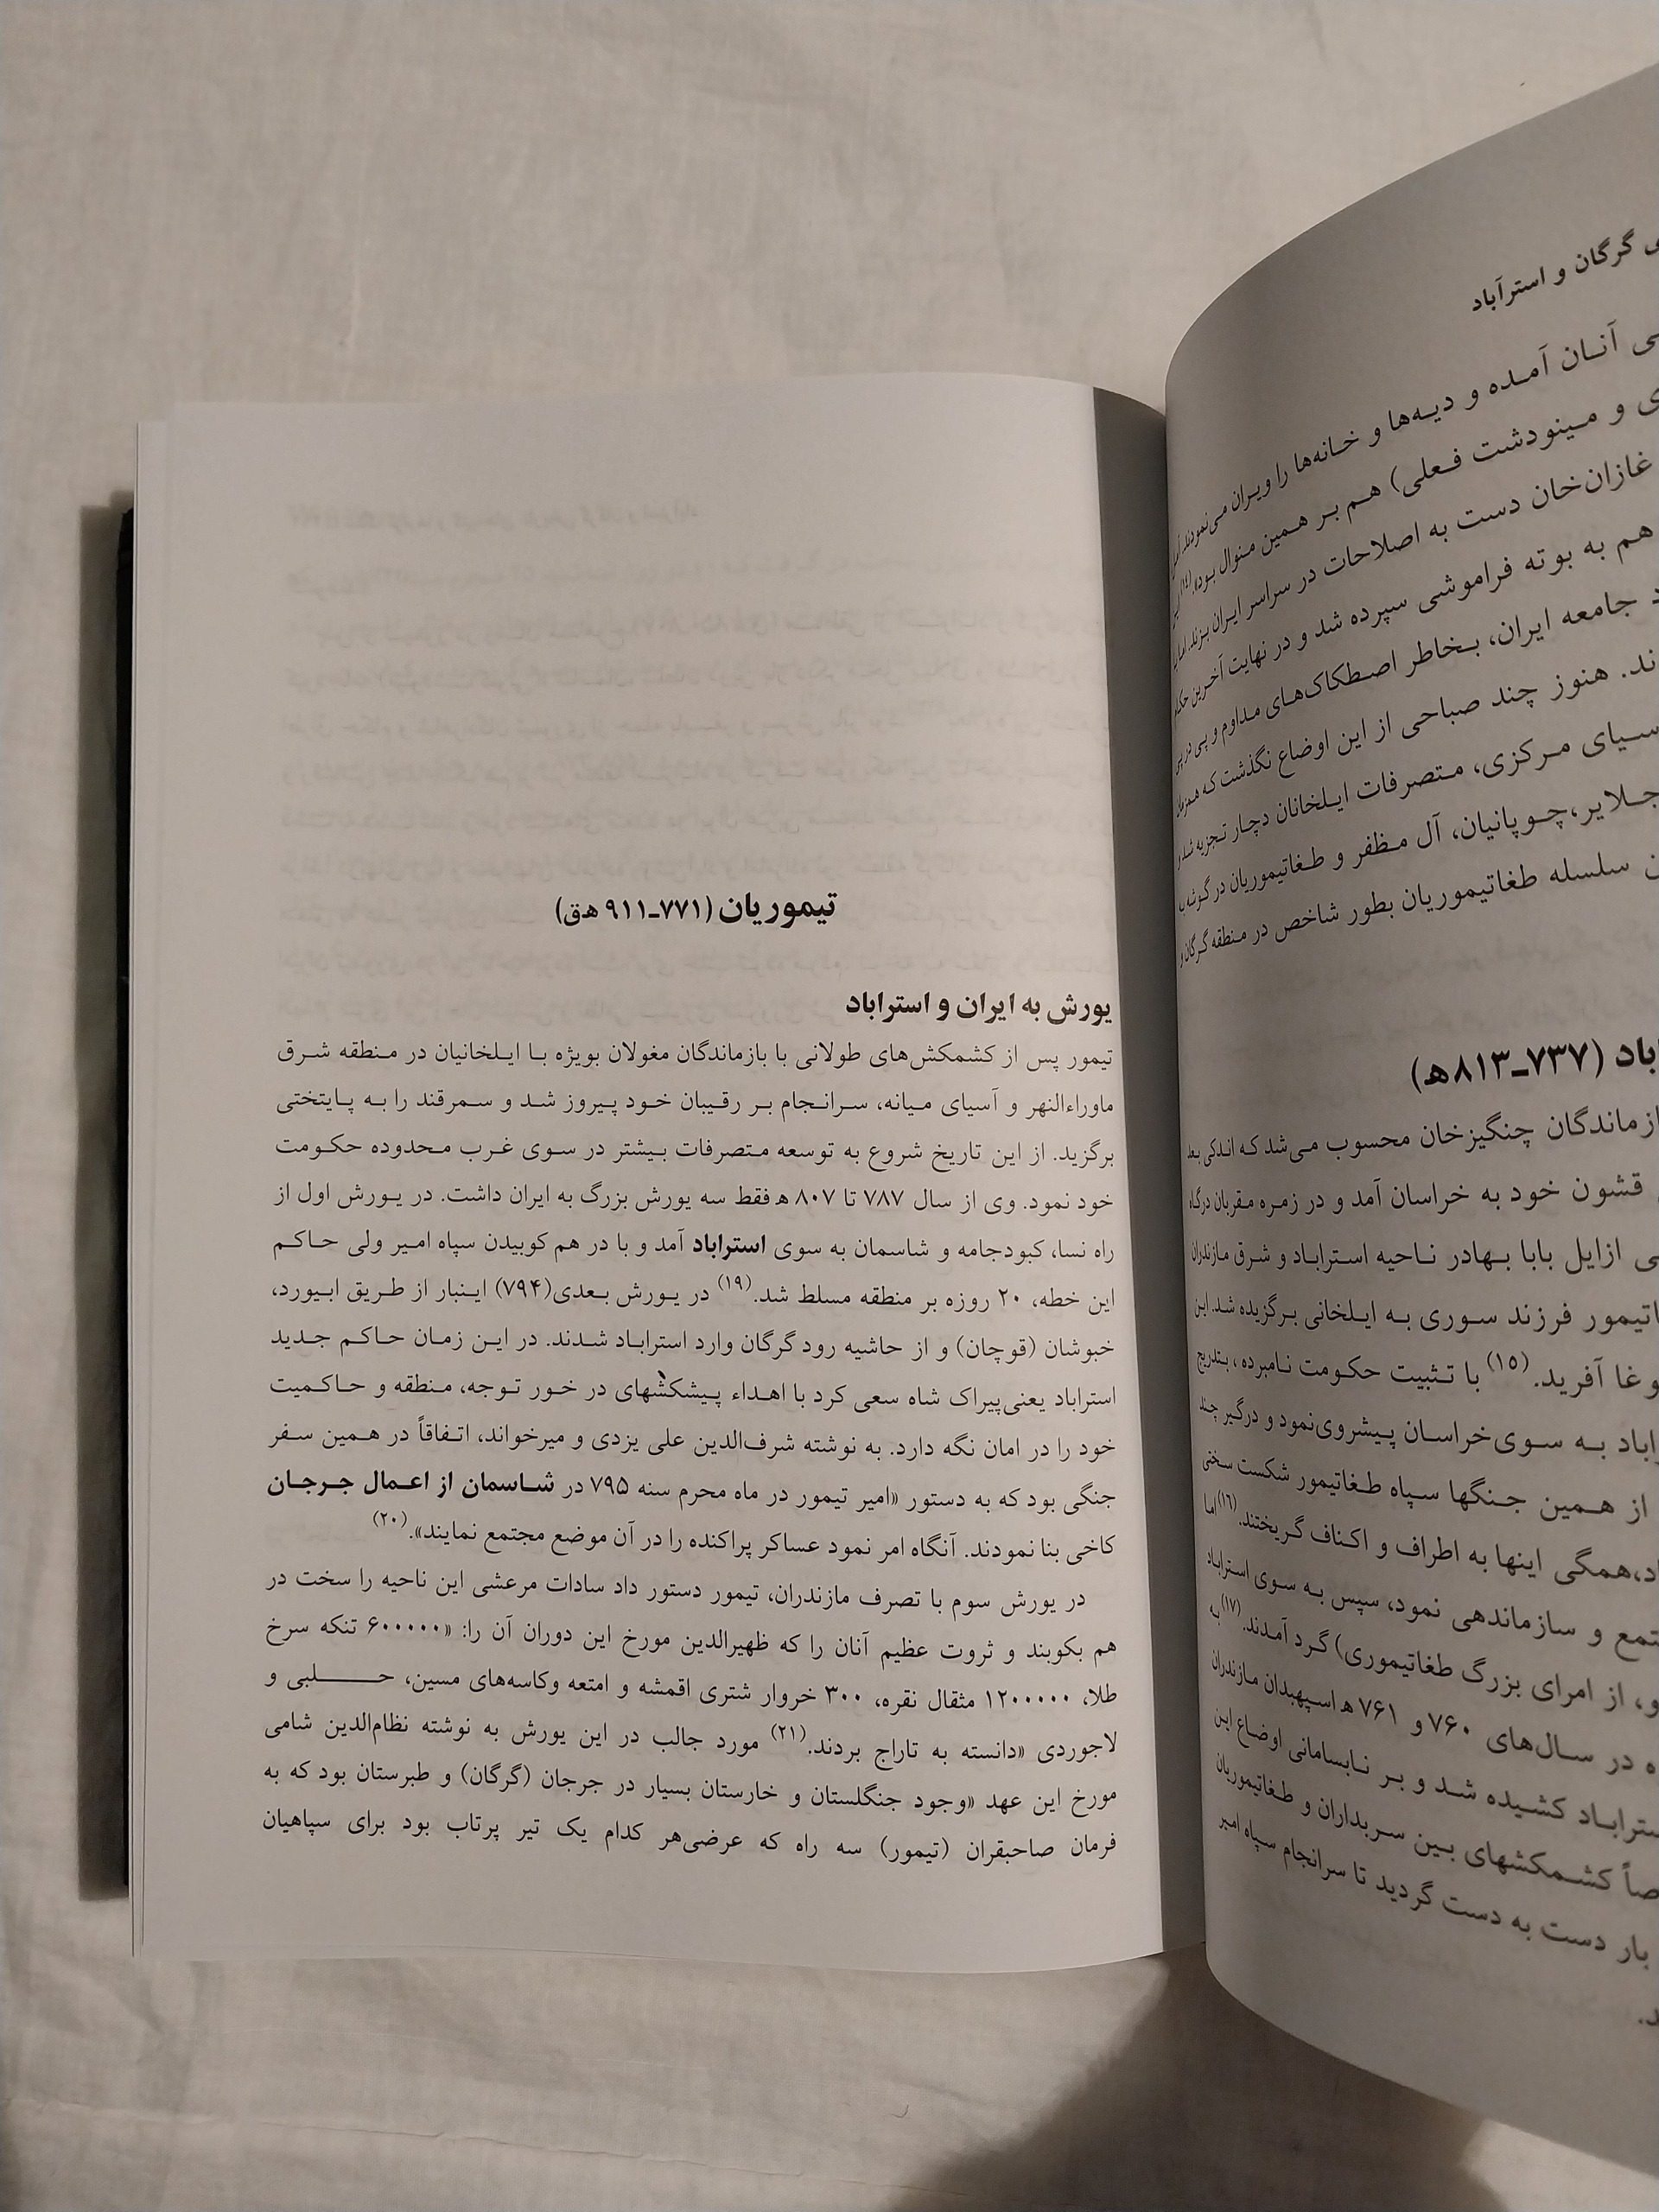 ی گرگان و استرآباد
ی آنان آمده و دیه‌ها و خانه‌ها را ویران می‌نمودند.
ی و مینودشت فعلی) هم بر همین منوال بود».(۱۴)
غازان‌خان دست به اصلاحات در سراسر ایران بزند. اما
هم به بوته فراموشی سپرده شد و در نهایت آخرین
د جامعه ایران، بخاطر اصطکاک‌های مداوم و پی در پی
ند. هنوز چند صباحی از این اوضاع نگذشت که همزمان
سیای مرکزی، متصرفات ایلخانان دچار تجزیه شد و
جلایر،چوپانیان، آل مظفر و طغاتیموریان در گوشه
ن سلسله طغاتیموریان بطور شاخص در منطقه گرگان و
باد (۷۳۷ـ۸۱۳ه‍)
ازماندگان چنگیزخان محسوب می‌شد که اندکی بعد
قشون خود به خراسان آمد و در زمره مقربان درگاه
ی ازایل بابا بهادر ناحیه استراباد و شرق مازندران
اتیمور فرزند سوری به ایلخانی برگزیده شد. این
وغا آفرید.(۱۵) با تثبیت حکومت نامبرده ، بتدریج
راباد به سوی‌خراسان پیشروی‌نمود و درگیر چند
از همین جنگها سپاه طغاتیمور شکست سختی
د،همگی اینها به اطراف و اکناف گریختند.(۱۶) اما
تمع و سازماندهی نمود، سپس به سوی استراباد
و، از امرای بزرگ طغاتیموری) گرد آمدند.(۱۷)
ه در سال‌های ۷۶۰ و ۷۶۱ ه‍ اسپهبدان مازندران
ستراباد کشیده شد و بر نابسامانی اوضاع این
صاً کشمکشهای بین سربداران و طغاتیموریان
بار دست به دست گردید تا سرانجام سپاه امیر
د.
تیموریان (۷۷۱ـ۹۱۱ ه‍.ق)
یورش به ایران و استراباد
تیمور پس از کشمکش‌های طولانی با بازماندگان مغولان بویژه با ایلخانیان در منطقه شرق
ماوراءالنهر و آسیای میانه، سرانجام بر رقیبان خود پیروز شد و سمرقند را به پایتختی
برگزید. از این تاریخ شروع به توسعه متصرفات بیشتر در سوی غرب محدوده حکومت
خود نمود. وی از سال ۷۸۷ تا ۸۰۷ ه‍ فقط سه یورش بزرگ به ایران داشت. در یورش اول از
راه نسا، کبودجامه و شاسمان به سوی استراباد آمد و با در هم کوبیدن سپاه امیر ولی حاکم
این خطه، ۲۰ روزه بر منطقه مسلط شد.(۱۹) در یورش بعدی(۷۹۴) اینبار از طریق ابیورد،
خبوشان (قوچان) و از حاشیه رود گرگان وارد استراباد شدند. در این زمان حاکم جدید
استراباد یعنی‌پیراک شاه سعی کرد با اهداء پیشکشهای در خور توجه، منطقه و حاکمیت
خود را در امان نگه دارد. به نوشته شرف‌الدین علی یزدی و میرخواند، اتفاقاً در همین سفر
جنگی بود که به دستور «امیر تیمور در ماه محرم سنه ۷۹۵ در شاسمان از اعمال جرجان
کاخی بنا نمودند. آنگاه امر نمود عساکر پراکنده را در آن موضع مجتمع نمایند».(۲۰)
در یورش سوم با تصرف مازندران، تیمور دستور داد سادات مرعشی این ناحیه را سخت در
هم بکوبند و ثروت عظیم آنان را که ظهیرالدین مورخ این دوران آن را: «۶۰۰۰۰۰ تنکه سرخ
طلا، ۱۲۰۰۰۰۰ مثقال نقره، ۳۰۰ خروار شتری اقمشه و امتعه وکاسه‌های مسین، حلبی و
لاجوردی «دانسته به تاراج بردند.(۲۱) مورد جالب در این یورش به نوشته نظام‌الدین شامی
مورخ این عهد «وجود جنگلستان و خارستان بسیار در جرجان (گرگان) و طبرستان بود که به
فرمان صاحبقران (تیمور) سه راه که عرضی‌هر کدام یک تیر پرتاب بود برای سپاهیان